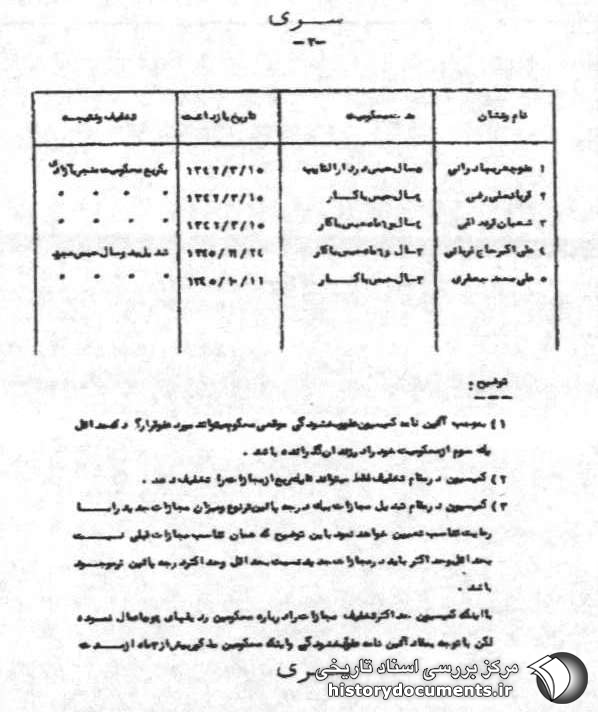 سری
-۲-
نام ونشان مدت محکومیت تاریخ بازداشت تخفیف ونتیجه
۱ منوچهر بهادرانی ۵سال حبس در دارالتادیب ۱۳۴۲/۳/۱۵ بکربع محکومیت منجر بآزادی
۲ قربانعلی رفی ۴سال حبس باکار ۱۳۴۲/۳/۱۵ " " " "
۳ ۴سال و ماه حبس باکار ۱۳۴۲/۳/۱۵ " " " "
۴ علی اکبر حاج قربانی ۳سال و ماه حبس باکار تبدیل بدوسال حبس
۵ علی محمد جعفری ۳سال حبس باکار ۱۳۴۵/۱۰/۱۱ " " "
توضیح :
۱) بموجب آئین نامه کمیسیون عفو وبخشودگی موقعی محکوم میتواند مورد عفو قرارگیرد که حداقل
یک سوم از محکومیت خود را در زندان گذرانده باشد .
۲) کمیسیون در مقام تخفیف فقط میتواند تا یک ربع از مجازات را تخفیف دهد .
۳) کمیسیون در مقام تبدیل مجازات به یک درجه پائین تر نوع ومیزان مجازات جدید را با
رعایت تناسب تعیین خواهد نمود باین توضیح که همان تناسب مجازات قبلی نسبت
بحداقل وحداکثر باید در مجازات جدید نسبت بحداقل وحداکثر درجه پائین تر موجود
باشد .
با اینکه کمیسیون حداکثر تخفیف مجازات را درباره محکومین ردیفهای اعمال نموده
لکن با توجه بمفاد آئین نامه عفو وبخشودگی و اینکه محکومین بیش از ۳ماه از مدت
سری
مرکز بررسی اسناد تاریخی
historydocuments.ir